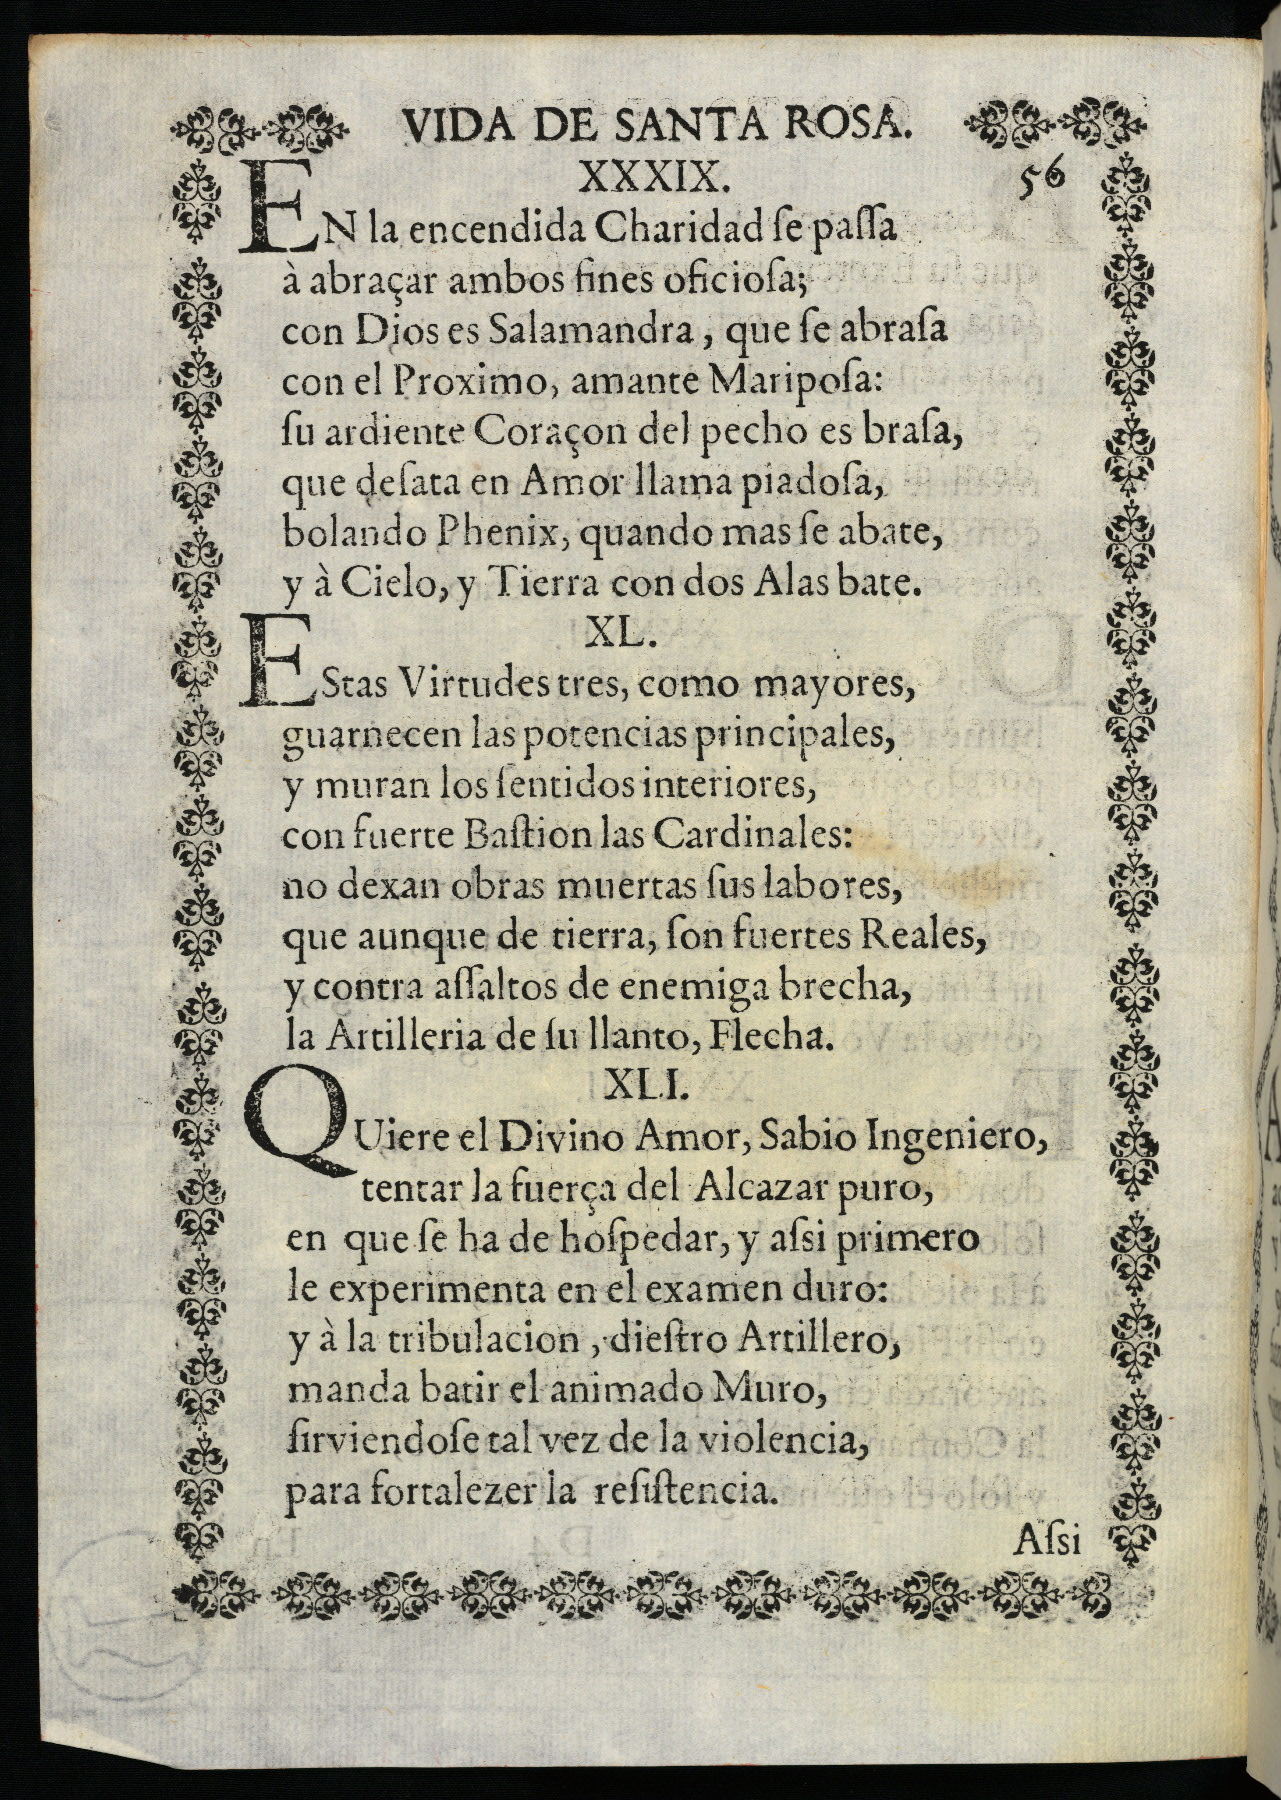 VIDA DE SANTA ROSA.
XXXIX.
56
EN la encendida Charidad ſe paſſa
à abraçar ambos fines oficioſa;
con Dios es Salamandra, que ſe abraſa
con el Proximo, amante Maripoſa:
ſu ardiente Coraçon del pecho es braſa,
que deſata en Amor llama piadoſa,
bolando Phenix, quando mas ſe abate,
y à Cielo, y Tierra con dos Alas bate.
XL.
EStas Virtudes tres, como mayores,
guarnecen las potencias principales,
y muran los ſentidos interiores,
con fuerte Baſtion las Cardinales:
no dexan obras muertas ſus labores,
que aunque de tierra, ſon fuertes Reales,
y contra aſſaltos de enemiga brecha,
la Artilleria de ſu llanto, Flecha.
XLI.
QUiere el Divino Amor, Sabio Ingeniero,
tentar la fuerça del Alcazar puro,
en que ſe ha de hoſpedar, y aſsi primero
le experimenta en el examen duro:
y à la tribulacion, dieſtro Artillero,
manda batir el animado Muro,
ſirviendoſe tal vez de la violencia,
para fortalezer la reſiſtencia.
Aſsi